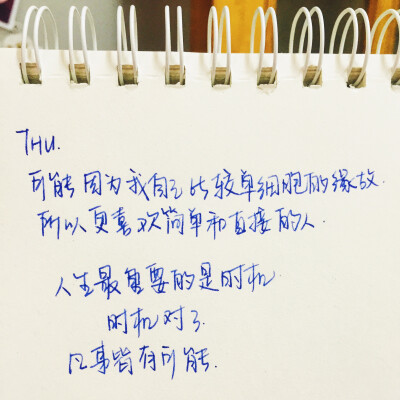 THU.
可能因为我自己比较单细胞的缘故.
所以更喜欢简单和直接的人.
人生最重要的是时机.
时机对了.
凡事皆有可能.